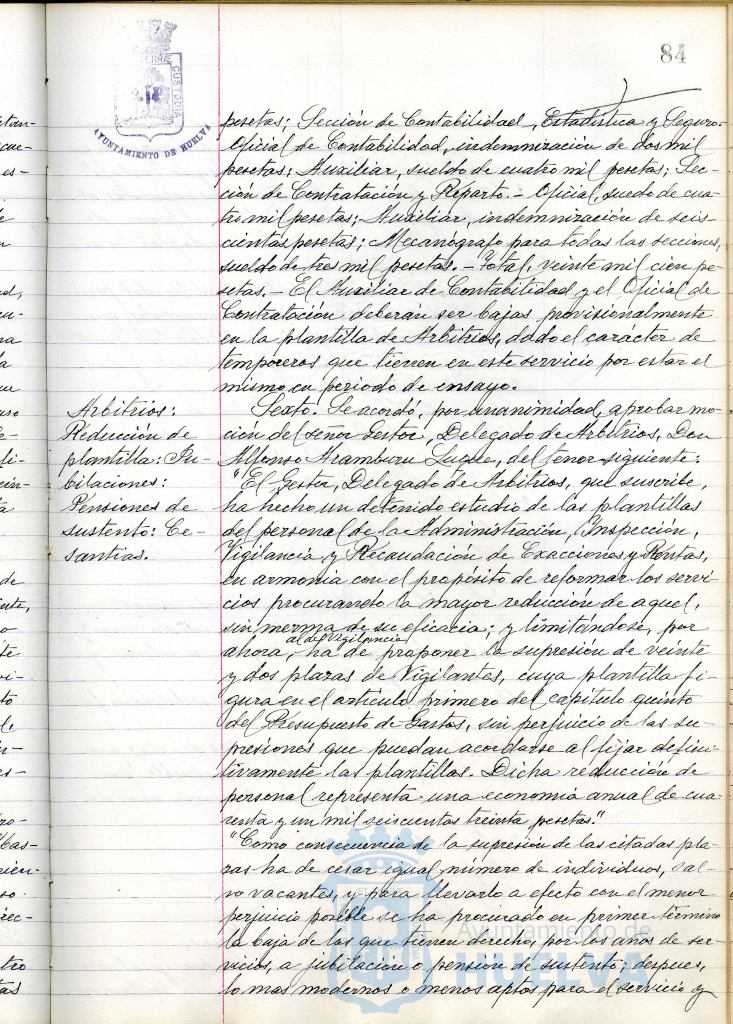 84
AYUNTAMIENTO DE HUELVA
pesetas; Sección de Contabilidad, Estadística y Seguro.
Oficial de Contabilidad, indemnización de dos mil
pesetas; Auxiliar, sueldo de cuatro mil pesetas; Sec-
ción de Contratación y Reparto.- Oficial, suedo de cua-
tro mil pesetas; Auxiliar, indemnización de seis-
cientas pesetas; Mecanógrafo para todas las secciones,
sueldo de tres mil pesetas.- Total, veinte mil cien pe-
setas.- El Auxiliar de Contabilidad y el Oficial de
Contratación deberan ser bajas provisionalmente
en la plantilla de Arbitrios, dado el carácter de
temporeros que tienen en este servicio por estar el
mismo en periodo de ensayo.
Arbitrios:
Reducción de
plantilla: Ju-
bilaciones:
Pensiones de
sustento: Ce-
santias.
Sexto. Se acordó, por unanimidad, aprobar mo-
ción del señor Gestor, Delegado de Arbitrios, Don
Alfonso Aramburu Luque, del tenor siguiente:
"El Gestor, Delegado de Arbitrios, que suscribe,
ha hecho un detenido estudio de las plantillas
del personal de la Administración, Inspección,
Vigilancia y Recaudación de Exacciones y Rentas,
en armonia con el propósito de reformar los servi-
cios procurando la mayor reducción de aquel,
sin merma de su eficacia; y limitándose, por
al de Vigilancia
ahora, ha de proponer la supresión de veinte
y dos plazas de Vigilantes, cuya plantilla fi-
gura en el artículo primero del capítulo quinto
del Presupuesto de Gastos, sin perjuicio de las su-
presiones que puedan acordarse al fijar defini-
tivamente las plantillas. Dicha reducción de
personal representa una economia anual de cua-
renta y un mil seiscientas treinta pesetas."
"Como consecuencia de la supresión de las citadas pla-
zas ha de cesar igual número de individuos, sal-
vo vacantes, y para llevarlo a efecto con el menor
perjuicio posible se ha procurado en primer término
la baja de las que tienen derecho, por los años de ser-
vicios, a jubilación o pensión de sustento; despues,
lo mas modernos o menos aptos para el servicio y
Ayuntamiento de
HUELVA